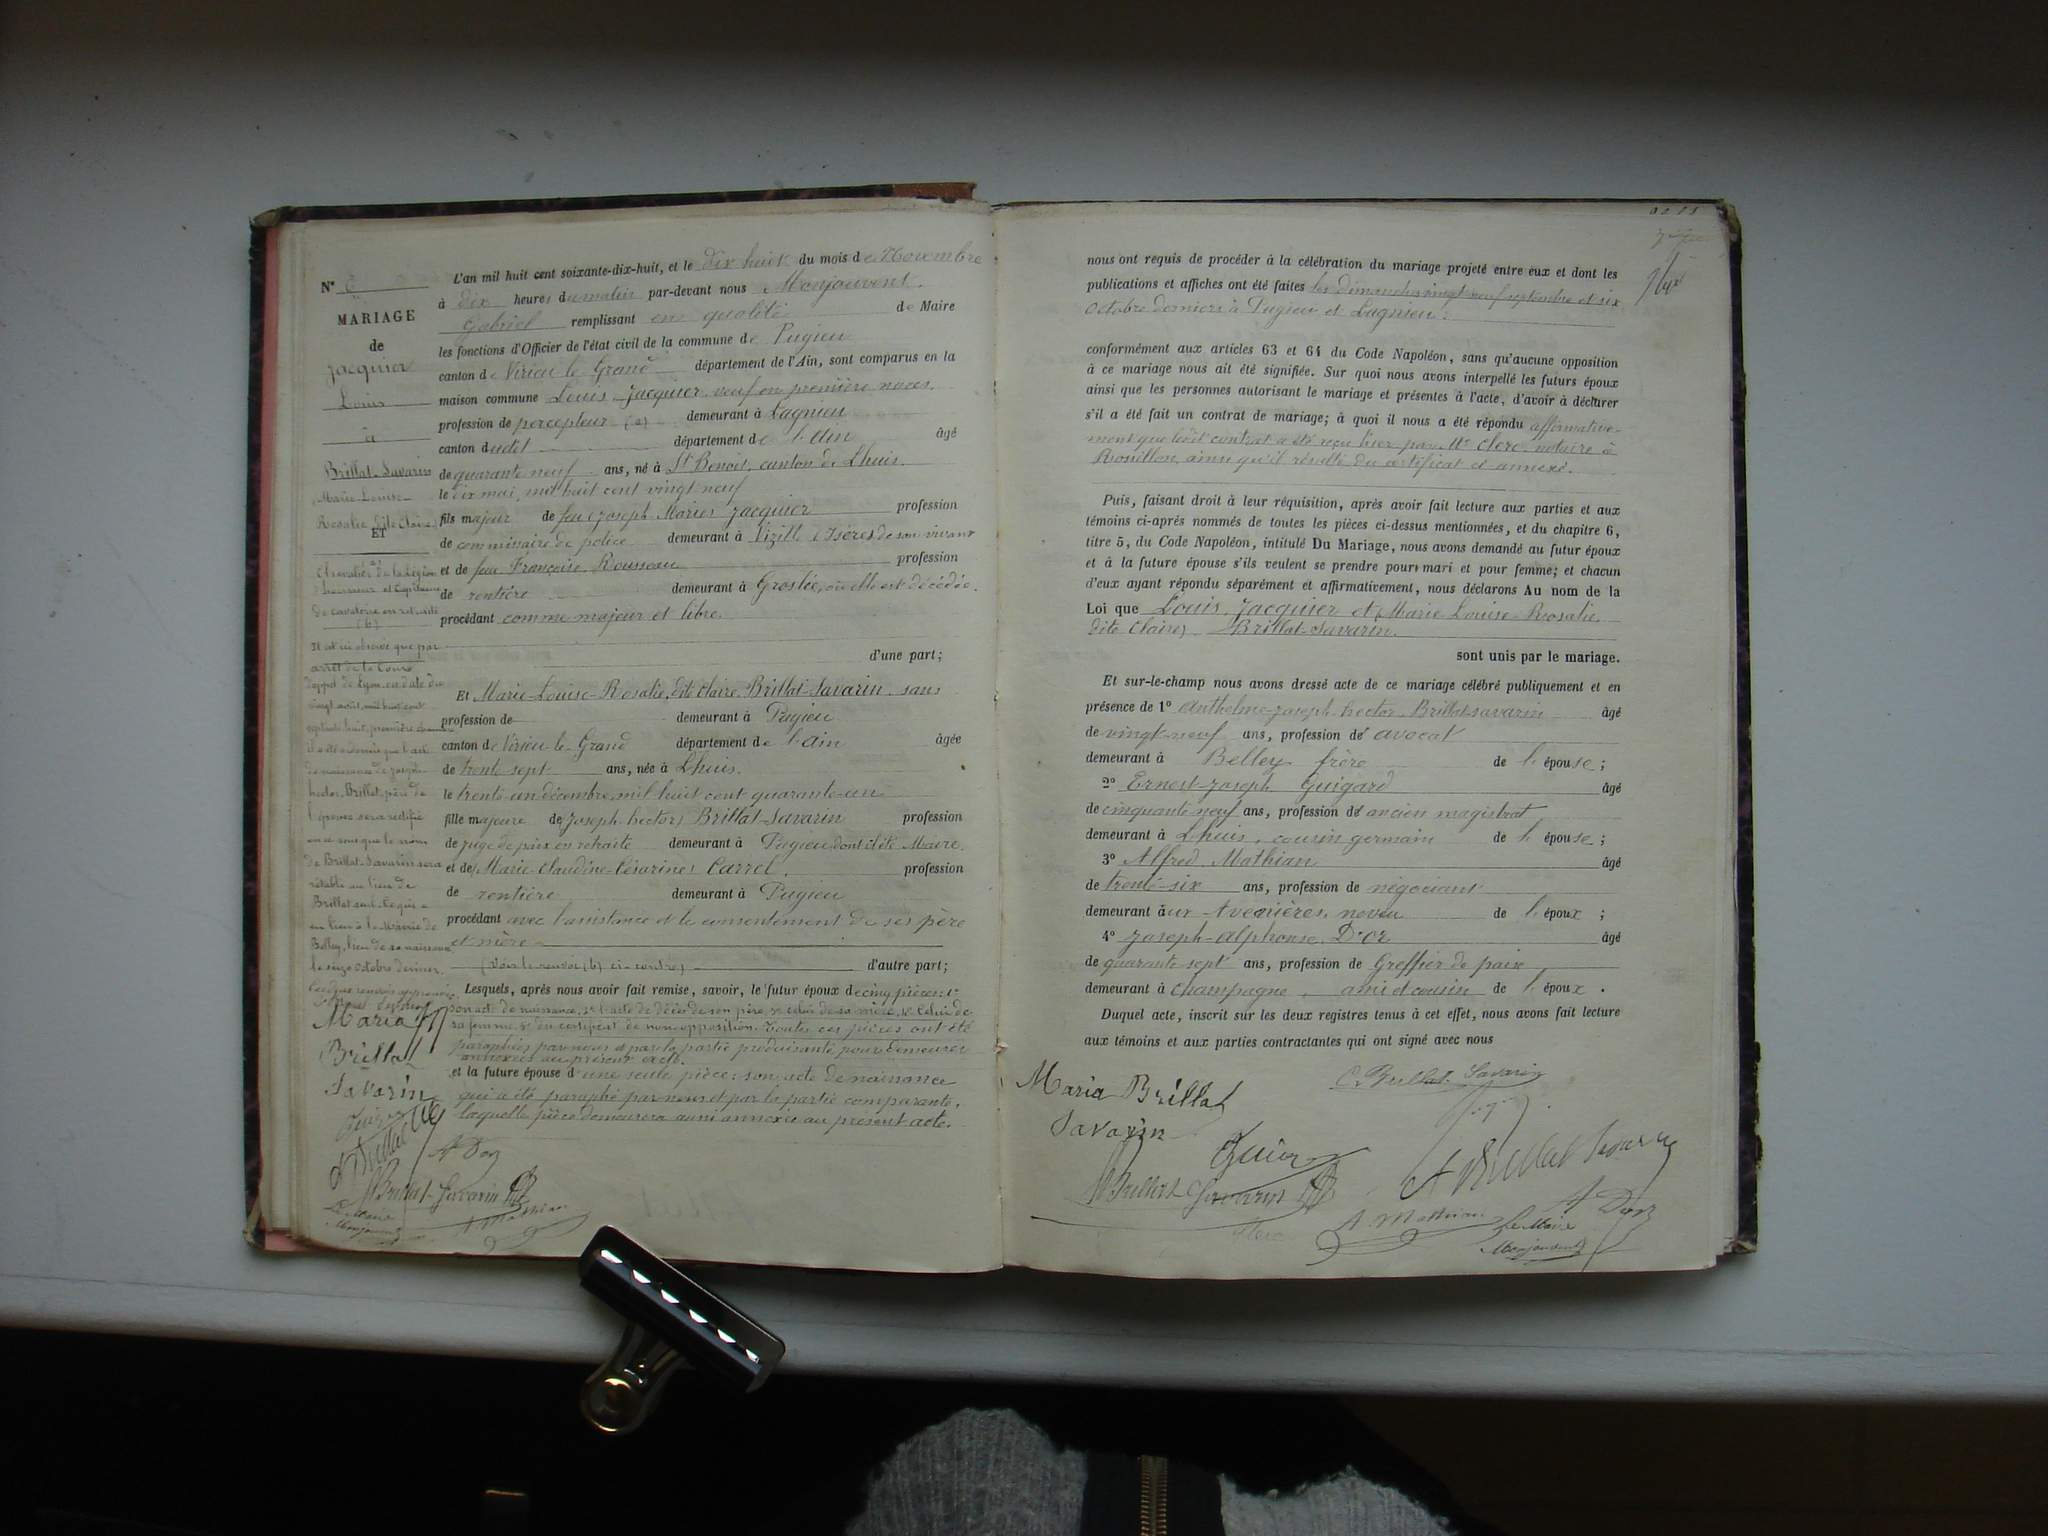 N° 6
MARIAGE
de
Jacquier
Louis
à
Brillat-Savarin
Marie-Louise-
Rosalie, dite Claire
ET
Chevalier de la Légion
d'honneur et Capitaine
de cavalerie en retraite
Il est ici observé que par
arrêt de la Cour
d'appel de Lyon en date du
vingt août mil huit cent
septante huit, première chambre
il a été ordonné que l'acte
de naissance de Joseph
hector Brillat, père de
l'épouse sera rectifié
en ce sens que le nom
de Brillat-Savarin sera
rétabli au lieu de
Brillat seul. Ce qui a
eu lieu à la Mairie de
Belley, lieu de sa naissance
le seize octobre dernier.
Maria
Brillat
Savarin
Brillat-Savarin
A Dor
A. Mathian
Le Maire
Monjouvent
L'an mil huit cent soixante-dix-huit, et le dix huit du mois de Novembre
à dix heures du matin par-devant nous Monjouvent
Gabriel remplissant en qualité de Maire
les fonctions d'Officier de l'état civil de la commune de Pugieu
canton de Virieu le Grand département de l'Ain, sont comparus en la
maison commune Louis Jacquier, veuf en première noces,
profession de percepteur (a) demeurant à Lagnieu
canton dudit département de l'Ain âgé
de quarante neuf ans, né à St Benoit, canton de Lhuis.
le dix mai, mil huit cent vingt neuf
fils majeur de feu (Joseph Marie) Jacquier profession
de commissaire de police demeurant à Vizille (Isère) de son vivant
et de feu Françoise Rousseau profession
de rentière demeurant à Groslée, où elle est décédée.
procédant comme majeur et libre.
d'une part;
Et Marie-Louise-Rosalie, dite Claire, Brillat-Savarin, sans
profession de demeurant à Pugieu
canton de Virieu-le-Grand département de l'Ain âgée
de trente sept ans, née à Lhuis.
le trente-un décembre, mil huit cent quarante-un
fille majeure de (Joseph-hector) Brillat-Savarin profession
de juge de paix en retraite demeurant à Pugieu, dont il été Maire.
et de (Marie-Claudine-Césarine) Carrel. profession
de rentière demeurant à Pugieu
procédant avec l'assistance et le consentement de ses père
et mère
(Voir le renvoi (b) ci-contre) d'autre part;
Lesquels, après nous avoir fait remise, savoir, le futur époux de cinq pièces: 1°
son acte de naissance, 2° l'acte de décès de son père, 3° celui de sa mère, 4° celui de
sa femme 5° du certificat de non-opposition. Toutes ces pièces ont été
paraphées par nous et par la partie produisante pour demeurer
annexées au présent acte.
et la future épouse d'une seule pièce: son acte de naissance
qui a été paraphé par nous et par la partie comparante,
laquelle pièce demeurera aussi annexée au présent acte.
nous ont requis de procéder à la célébration du mariage projeté entre eux et dont les
publications et affiches ont été faites les dimanches vingt neuf septembre et six
Octobre derniers à Pugieu et Lagnieu.
conformément aux articles 63 et 64 du Code Napoléon, sans qu'aucune opposition
à ce mariage nous ait été signifiée. Sur quoi nous avons interpellé les futurs époux
ainsi que les personnes autorisant le mariage et présentes à l'acte, d'avoir à déclarer
s'il a été fait un contrat de mariage; à quoi il nous a été répondu affirmative-
ment que ledit contrat a été reçu hier par Me Clerc, notaire à
Rossillon, ainsi qu'il résulte du certificat ci-annexé.
Puis, faisant droit à leur réquisition, après avoir fait lecture aux parties et aux
témoins ci-après nommés de toutes les pièces ci-dessus mentionnées, et du chapitre 6,
titre 5, du Code Napoléon, intitulé Du Mariage, nous avons demandé au futur époux
et à la future épouse s'ils veulent se prendre pour mari et pour femme; et chacun
d'eux ayant répondu séparément et affirmativement, nous déclarons Au nom de la
Loi que Louis, Jacquier et (Marie-Louise-Rosalie
dite Claire) Brillat-Savarin.
sont unis par le mariage.
Et sur-le-champ nous avons dressé acte de ce mariage célébré publiquement et en
présence de 1° Anthelme-Joseph-hector Brillat-Savarin âgé
de vingt-neuf ans, profession d'avocat
demeurant à Belley frère de l'épouse;
2° Ernest-Joseph Guigard âgé
de cinquante neuf ans, profession d'ancien magistrat
demeurant à Lhuis, cousin germain de l'épouse;
3° Alfred Mathian âgé
de trente-six ans, profession de négociant
demeurant aux Avenières, neveu de l'époux;
4° Joseph-Alphonse, D'or âgé
de quarante sept ans, profession de Greffier de paix
demeurant à Champagne, ami et cousin de l'époux.
Duquel acte, inscrit sur les deux registres tenus à cet effet, nous avons fait lecture
aux témoins et aux parties contractantes qui ont signé avec nous
Maria Brillat
Savarin
C. Brillat-Savarin
Brillat-Savarin
A. Mathian
A Dor
Le Maire
Monjouvent